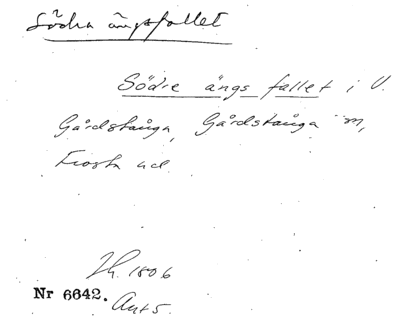 Södra ängsfallet
Södre ängs fallet i V.
Gårdstånga, Gårdstånga sn,
Frosta hd.
Lh. 1806
Nr 6642. Akt 5.